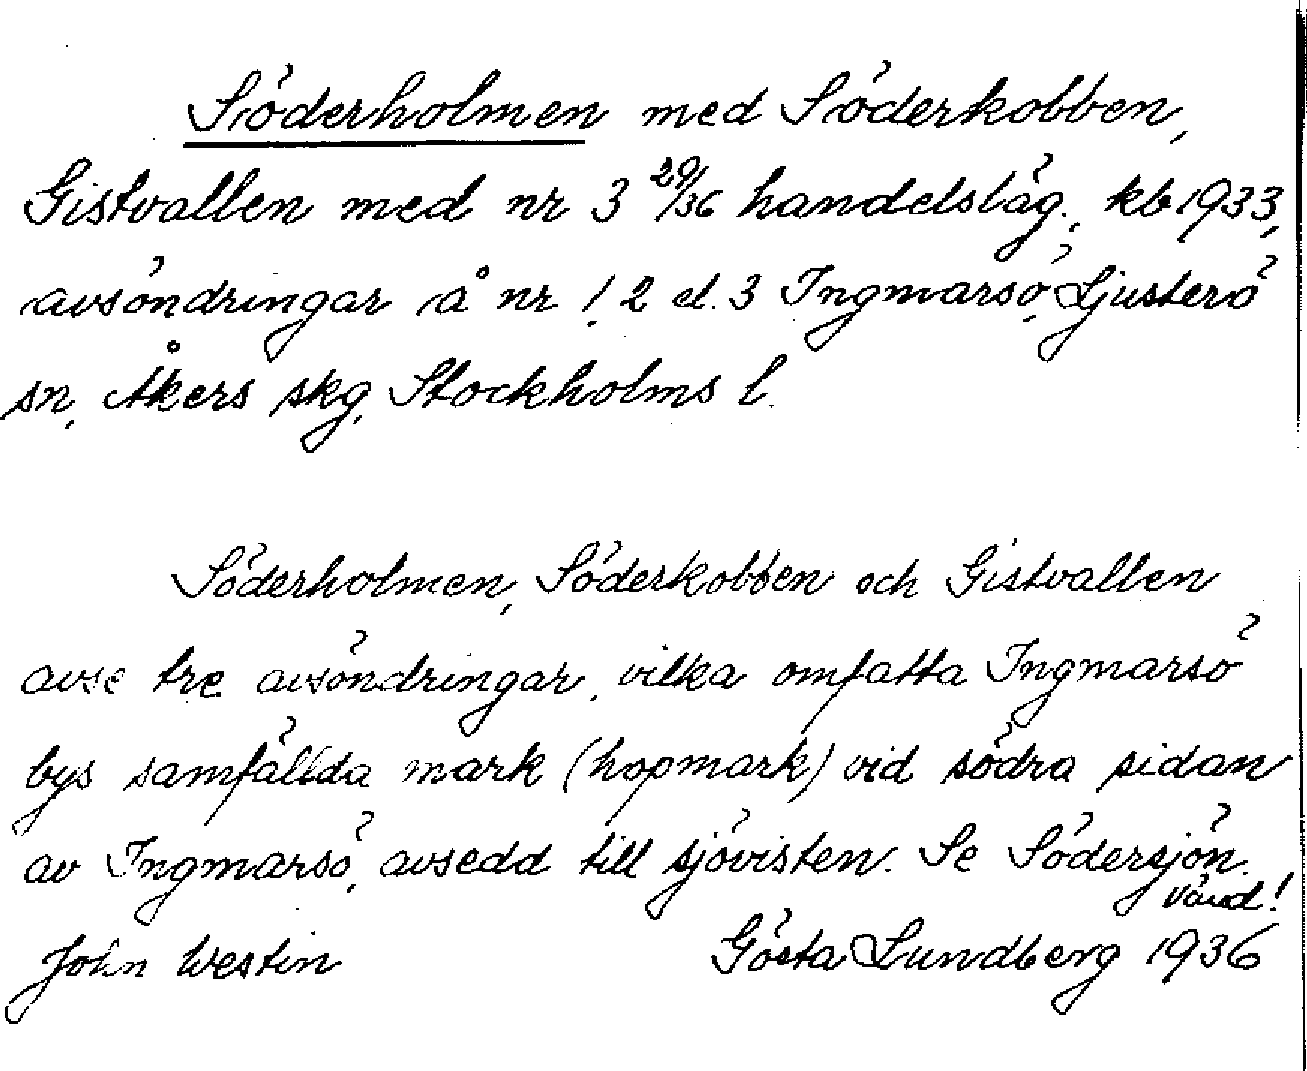 Söderholmen med Söderkobben,
Gistvallen med nr 3 29/36 handelsläg., kb 1933,
avsöndringar å nr 1, 2 el. 3 Ingmarsö, Ljusterö
sn, Åkers skg, Stockholms l.
Söderholmen, Söderkobben och Gistvallen
avse tre avsöndringar, vilka omfatta Ingmarsö
bys samfällda mark (hopmark) vid södra sidan
av Ingmarsö, avsedd till sjövisten. Se Södersjön.
Vänd!
John Westin Gösta Lundberg 1936